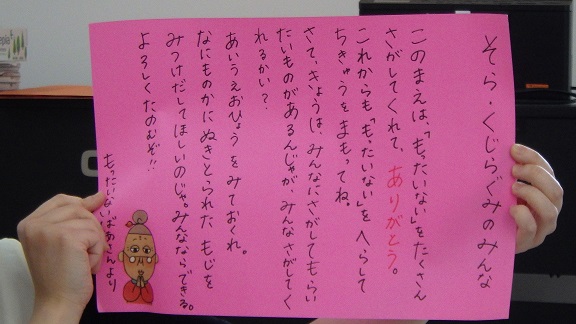 そら・くじらぐみのみんな
このまえは、「もったいない」をたくさん
さがしてくれて、ありがとう。
これからも「もったいない」をへらして
ちきゅうをまもってね。
さて、きょうは、みんなにさがしてもらい
たいものがあるんじゃが、みんなさがしてく
れるかい？
あいうえおひょうをみておくれ。
なにものかにぬきとられたもじを
みつけだしてほしいのじゃ。みんなならできる。
よろしくたのむぞ!!
もったいないばあさんより